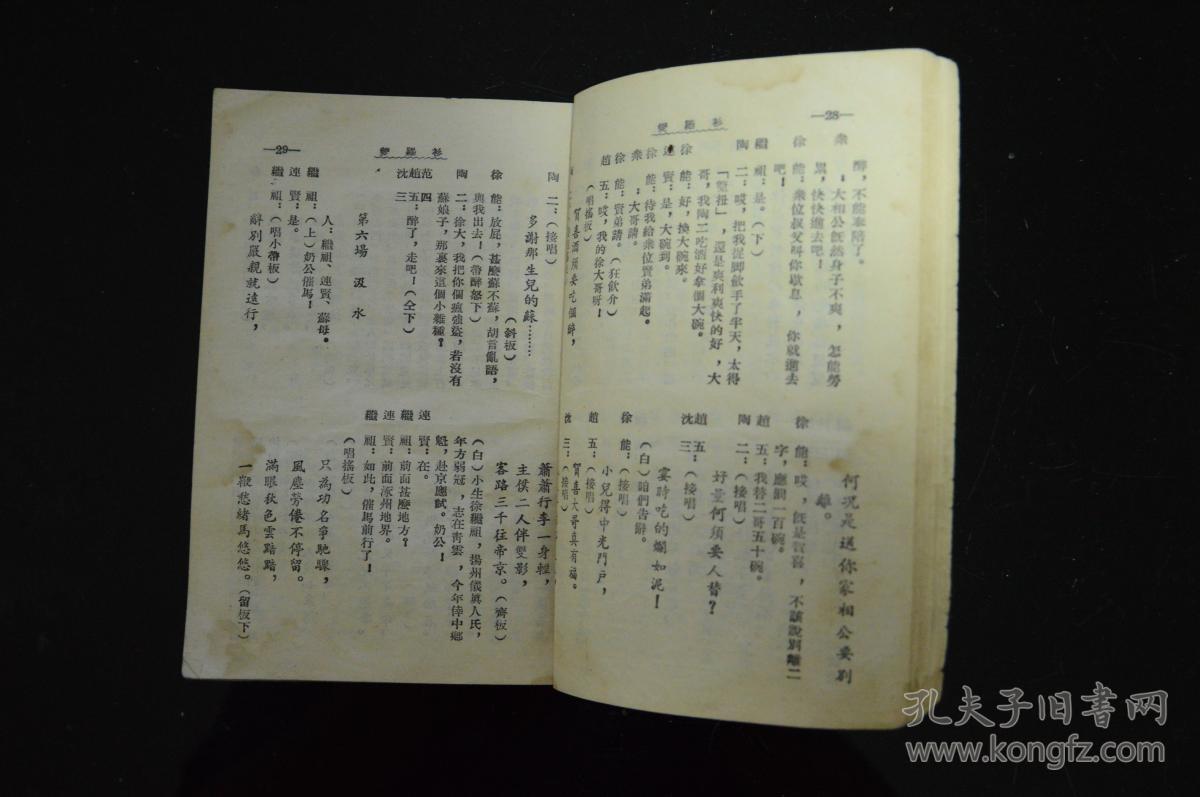 —28—
雙羅衫
衆 醉，不能奉陪了。
：大相公旣然身子不爽，怎能勞
累，快快進去吧！
徐 能：衆位叔父叫你歇息，你就進去
吧！
繼 祖：是。（下）
陶 二：哎，把我從脚飲手了半天，太得
「蹩扭」，還是爽利爽快的好，大
哥，我陶二吃酒好拿個大碗。
徐 能：好，換大碗來。
連 賢：是，大碗到。
徐 能：待我給衆位賢弟滿起。
衆 ：大哥請。
徐 能：賢弟請。（狂飲介）
趙 五：哎，我的徐大哥呀！
（唱搖板）
賀喜酒須要吃個醉，
何況是送你家相公要別
離。
徐 能：哎，旣是賀喜，不該說別離二
字，應罰一百碗。
趙 五：我替二哥五十碗。
陶 二：（接唱）
好量何須要人替？
趙 五
沈 三：（接唱）
霎時吃的爛如泥！
（白）咱們告辭。
徐 能：（接唱）
小兒得中光門戶，
趙 五：（接唱）
賀喜大哥真有福。
沈 三：（接唱）
—29—
雙羅衫
陶 二：（接唱）
多謝那生兒的蘇………
（斜板）
徐 能：放屁，甚麼蘇不蘇，胡言亂語，
與我出去！（帶醉怒下）
陶 二：徐大，我把你個瘟強盜，若沒有
蘇娘子，那裏來這個小雜種？
范 四
趙 五：醉了，走吧！（仝下）
沈 三
第六場 汲水
人：繼祖、連賢、蘇母。
繼 祖：（上）奶公催馬！
連 賢：是。
繼 祖：（唱小帶板）
辭別嚴親就遠行，
蕭蕭行李一身輕，
主僕二人伴雙影，
客路三千往帝京。（齊板）
（白）小生徐繼祖，揚州儀眞人氏，
年方弱冠，志在靑雲，今年倖中鄉
魁，赴京應試。奶公！
連 賢：在。
繼 祖：前面甚麼地方？
連 賢：前面涿州地界。
繼 祖：如此，催馬前行了！
（唱搖板）
只為功名爭馳驟，
風塵勞倦不停留。
滿眼秋色雲黯黯，
一觀愁緒馬悠悠。（留板下）
孔夫子旧書网
www.kongfz.com